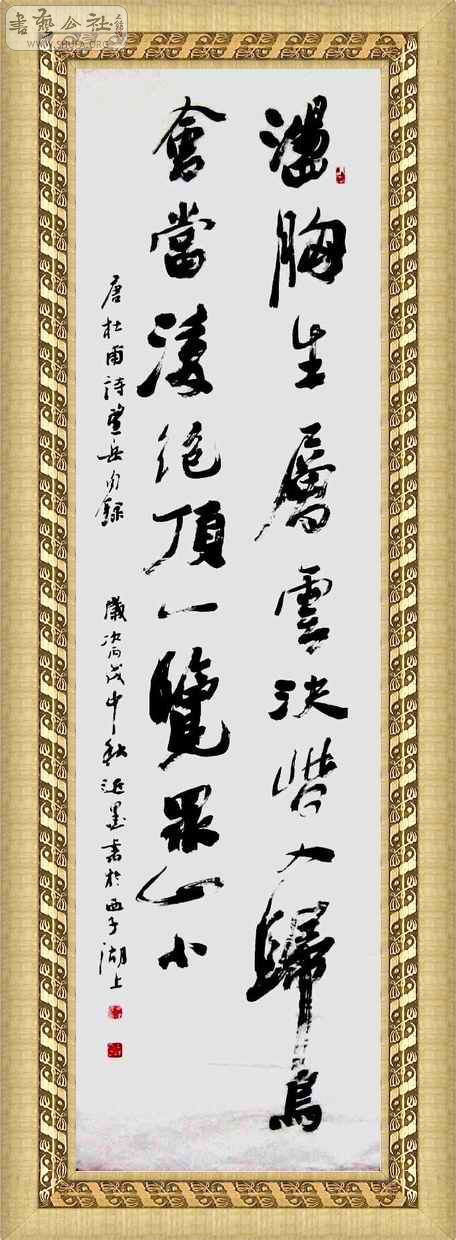 書藝公社
WWW.SHUFA.ORG
盪胸生層雲決眥入歸鳥
會當凌絕頂一覽眾山小
唐杜甫詩望岳句錄 歲次丙戌中秋近墨書於西子湖上